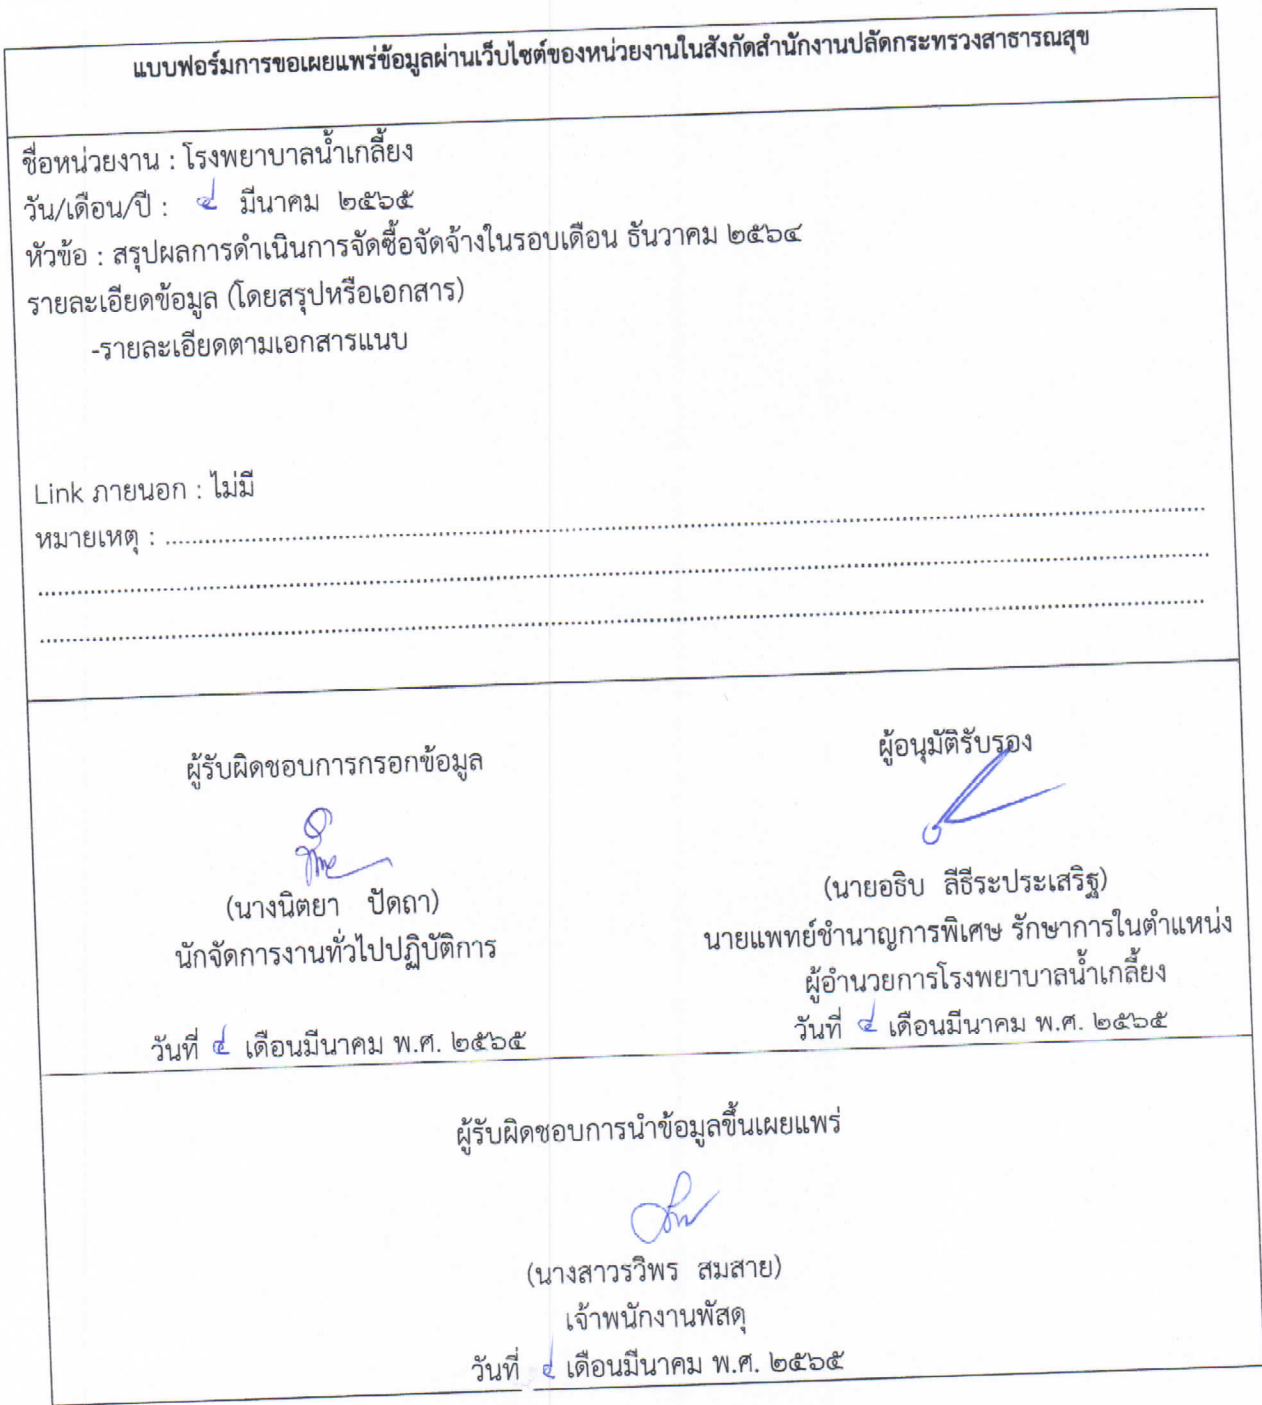 แบบฟอร์มการขอเผยแพร่ข้อมูลผ่านเว็บไซต์ของหน่วยงานในสังกัดสำนักงานปลัดกระทรวงสาธารณสุข
ชื่อหน่วยงาน : โรงพยาบาลน้ำเกลี้ยง
วัน/เดือน/ปี : ๔ มีนาคม ๒๕๖๕
หัวข้อ : สรุปผลการดำเนินการจัดซื้อจัดจ้างในรอบเดือน ธันวาคม ๒๕๖๔
รายละเอียดข้อมูล (โดยสรุปหรือเอกสาร)
-รายละเอียดตามเอกสารแนบ
Link ภายนอก : ไม่มี
หมายเหตุ : ........................................................................
........................................................................
........................................................................
ผู้รับผิดชอบการกรอกข้อมูล
(นางนิตยา ปัดถา)
นักจัดการงานทั่วไปปฏิบัติการ
วันที่ ๔ เดือนมีนาคม พ.ศ. ๒๕๖๕
ผู้อนุมัติรับรอง
(นายอธิบ ลีธีระประเสริฐ)
นายแพทย์ชำนาญการพิเศษ รักษาการในตำแหน่ง
ผู้อำนวยการโรงพยาบาลน้ำเกลี้ยง
วันที่ ๔ เดือนมีนาคม พ.ศ. ๒๕๖๕
ผู้รับผิดชอบการนำข้อมูลขึ้นเผยแพร่
(นางสาวรวิพร สมสาย)
เจ้าพนักงานพัสดุ
วันที่ ๔ เดือนมีนาคม พ.ศ. ๒๕๖๕